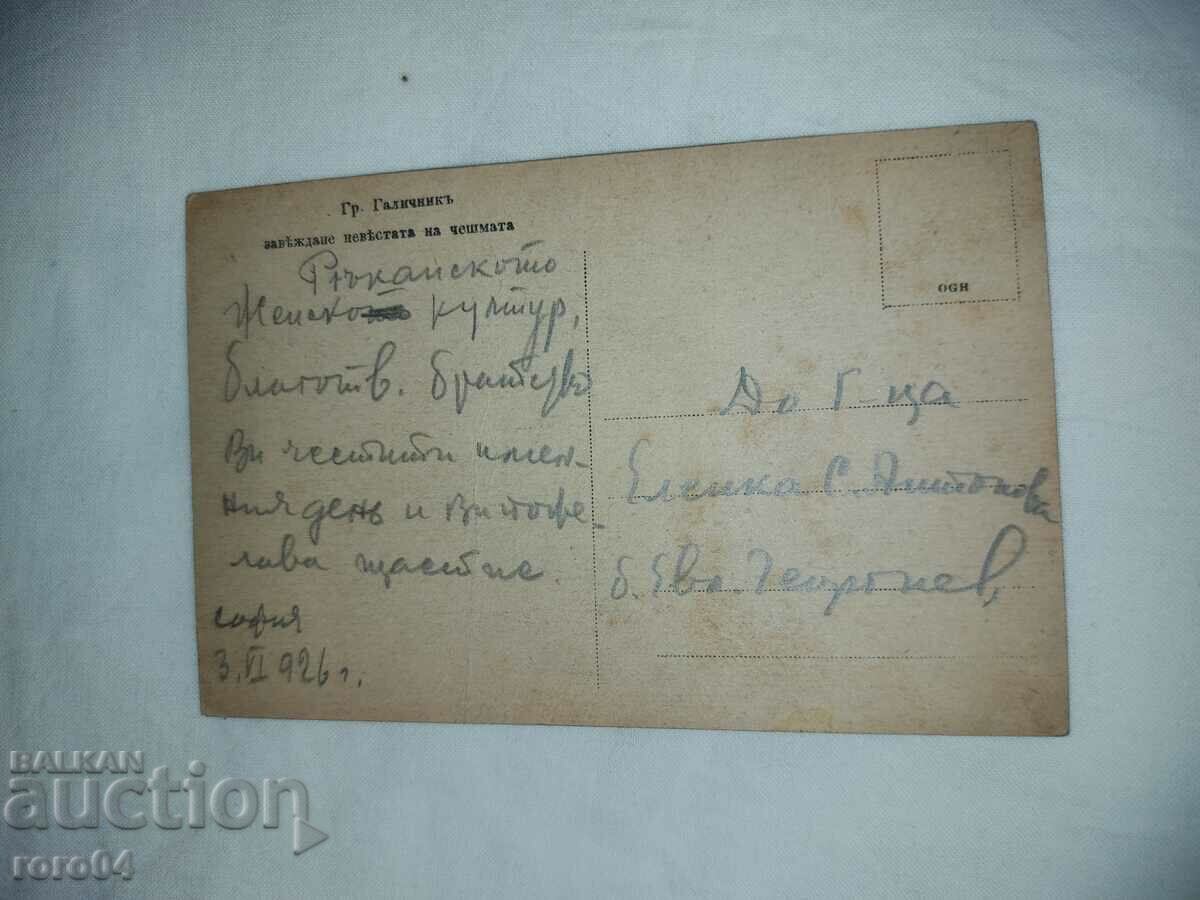 Гр. Галичникъ
завѣждане невѣстата на чешмата
Женско култур,
благотв. братство
Ви честити имен-
ния день и Ви поже-
лава щастие.
София
3.VI 926 г.
OGH
До Г-ца
Еленка С. Антонова
б. Евл. Георгиев,
BALKAN
auction
roro04